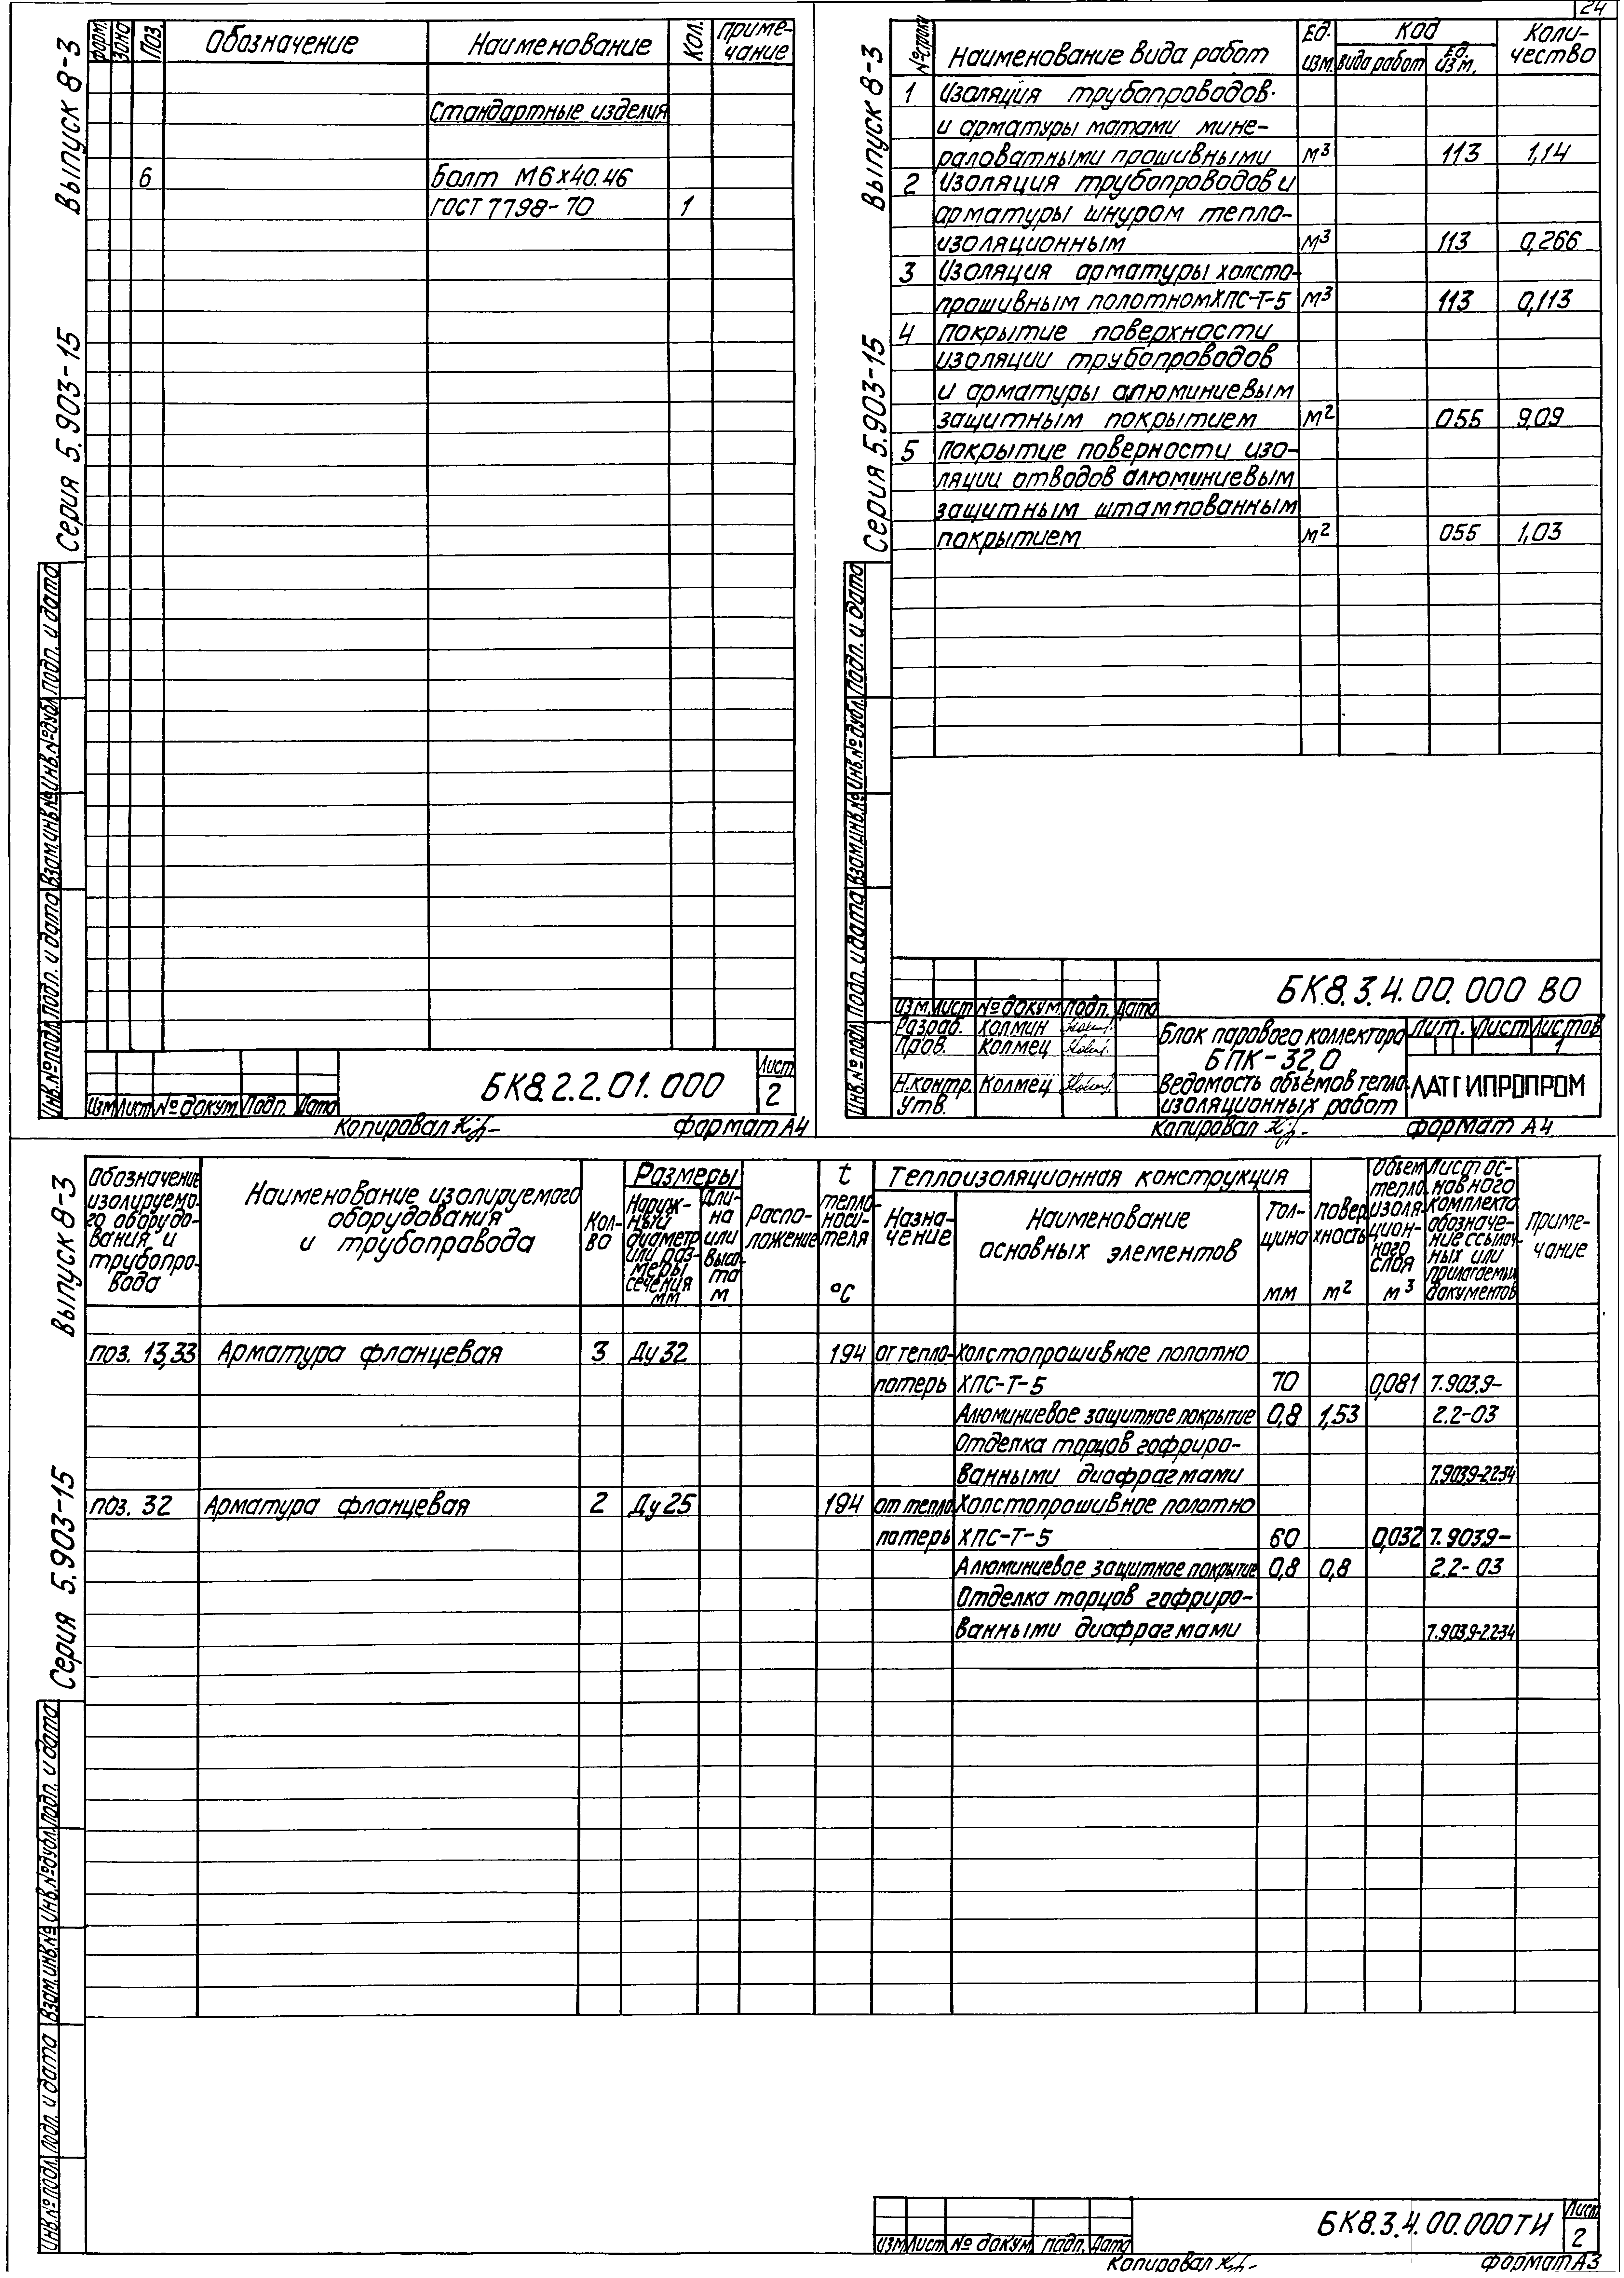 24
Выпуск 8-3
Серия 5.903-15
форм. Зона Поз. Обозначение Наименование Кол. Приме-
чание
Стандартные изделия
6 Болт М6×40.46
ГОСТ 7798-70 1
Инв.№подл. Подп. и дата Взам.инв.№ Инв.№дубл. Подп. и дата
Изм. Лист № докум. Подп. Дата
БК8.2.2.01.000
Лист
2
Копировал
Формат А4
Выпуск 8-3
Серия 5.903-15
№ строки Наименование вида работ Ед. изм. Код Коли-
чество
вида работ Ед. изм.
1 Изоляция трубопроводов
и арматуры матами мине-
раловатными прошивными м³ 113 1,14
2 Изоляция трубопроводов и
арматуры шнуром тепло-
изоляционным м³ 113 0,266
3 Изоляция арматуры холсто-
прошивным полотном ХПС-Т-5 м³ 113 0,113
4 Покрытие поверхности
изоляции трубопроводов
и арматуры алюминиевым
защитным покрытием м² 055 9,09
5 Покрытие поверности изо-
ляции отводов алюминиевым
защитным штампованным
покрытием м² 055 1,03
Инв.№подл. Подп. и дата Взам.инв.№ Инв.№дубл. Подп. и дата
БК.8.3.4.00.000 ВО
Изм. Лист № докум. Подп. Дата
Разраб. Колмин
Пров. Колмец
Н.контр. Колмец
Утв.
Блок парового коллектора
БПК-32,0
Ведомость объемов тепло-
изоляционных работ
Лит. Лист Листов
1
ЛАТГИПРОПРОМ
Копировал
Формат А4
Выпуск 8-3
Серия 5.903-15
Обозначение
изолируемо-
го оборудо-
вания и
трубопро-
вода
Наименование изолируемого
оборудования
и трубопровода
Кол-
во
Размеры
Наруж-
ный
диаметр
или раз-
меры
сечения
мм
Дли-
на
или
высо-
та
м
Распо-
ложение
t
тепло-
носи-
теля
°С
Теплоизоляционная конструкция
Назна-
чение
Наименование
основных элементов
Тол-
щина
мм
Повер-
хность
м²
Объем
тепло-
изоля-
цион-
ного
слоя
м³
Лист ос-
новного
комплекта
обозначе-
ние ссылоч-
ных или
прилагаемых
документов
Приме-
чание
поз. 13,33 Арматура фланцевая 3 Ду 32 194 от тепло- Холстопрошивное полотно
потерь ХПС-Т-5 70 0,081 7.903.9-
Алюминиевое защитное покрытие 0,8 1,53 2.2-03
Отделка торцов гофриро-
ванными диафрагмами 7.903.9-2.2-34
поз. 32 Арматура фланцевая 2 Ду 25 194 от тепло Холстопрошивное полотно
потерь ХПС-Т-5 60 0,032 7.903.9-
Алюминиевое защитное покрытие 0,8 0,8 2.2-03
Отделка торцов гофриро-
ванными диафрагмами 7.903.9-2.2-34
Инв.№подл. Подп. и дата Взам.инв.№ Инв.№дубл. Подп. и дата
Изм Лист № докум. Подп. Дата
БК8.3.4.00.000ТИ
Лист
2
Копировал
Формат А3